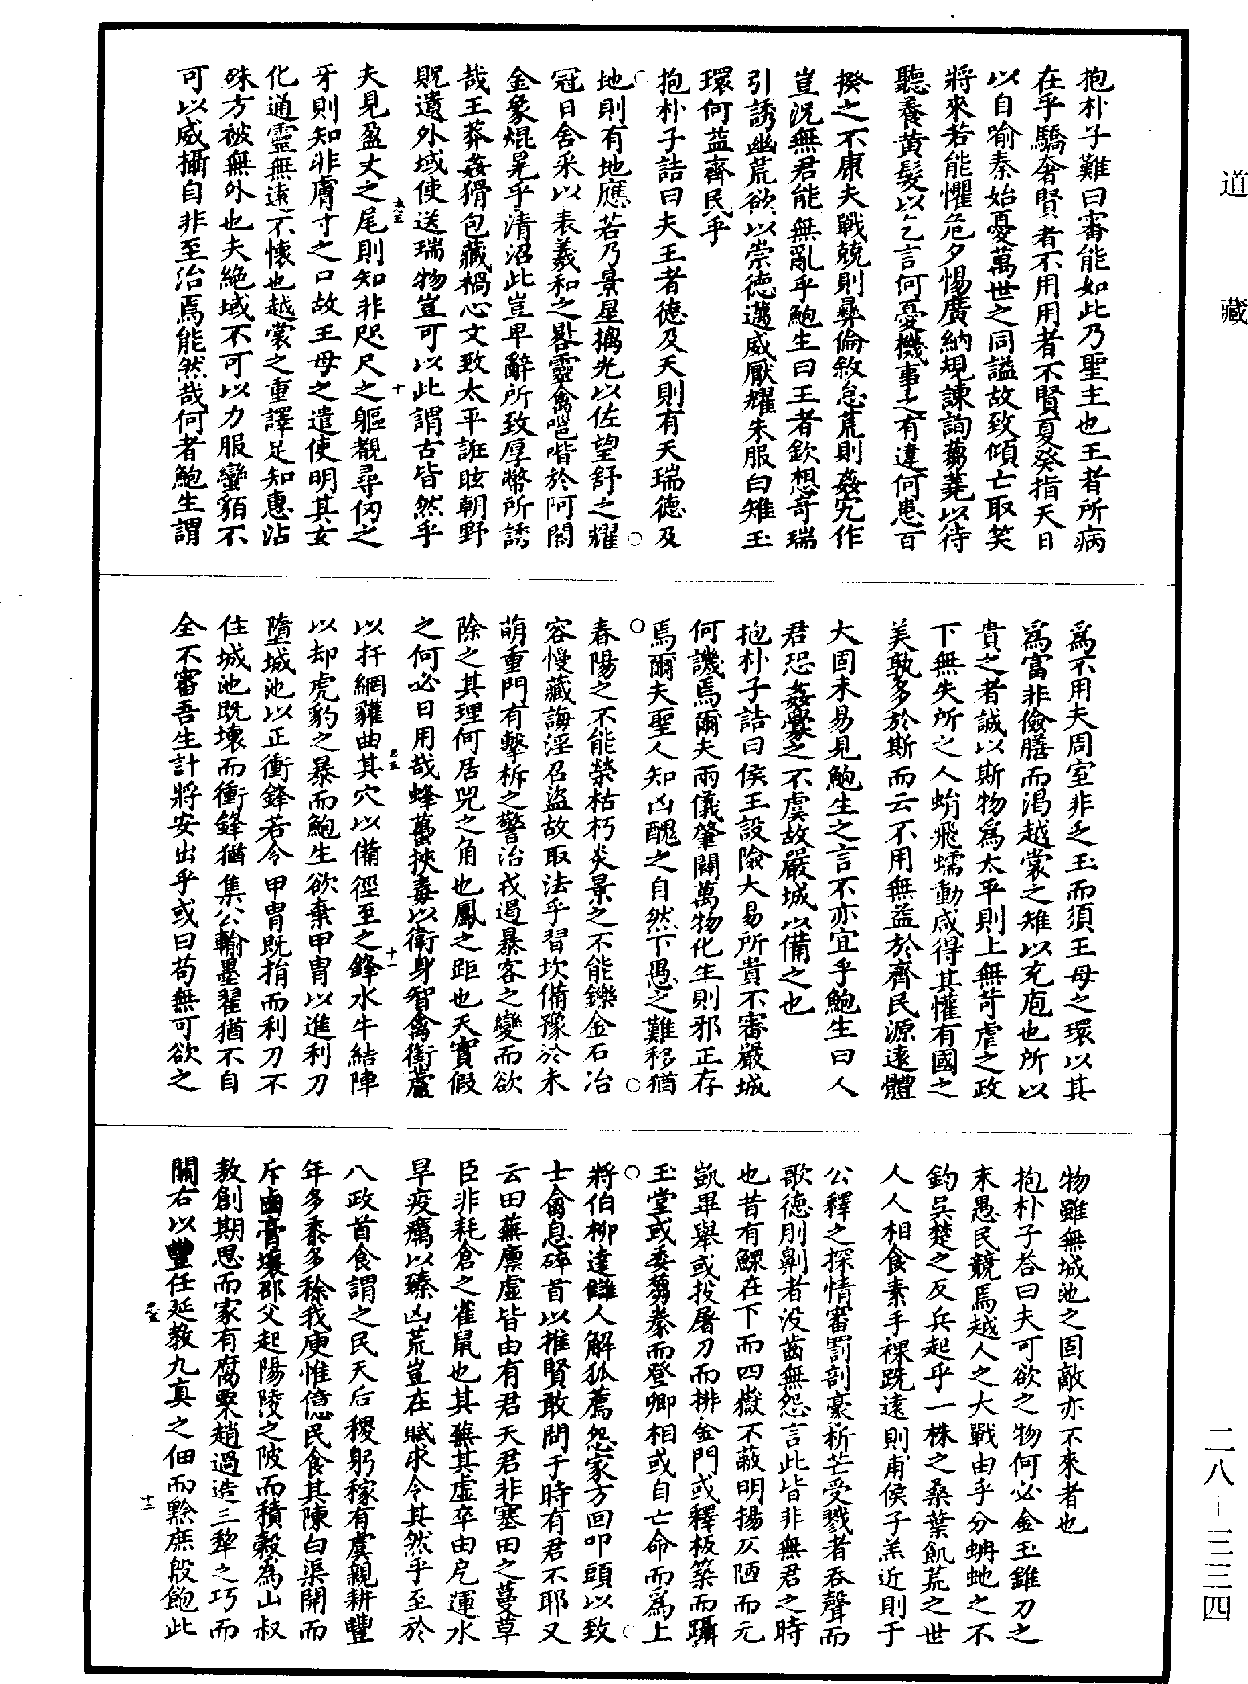 道藏
抱朴子難曰審能如此乃聖主也王者所病
在乎驕奢賢者不用用者不賢夏癸指天日
以自喻秦始憂萬世之同謚故致傾亡取笑
將來若能懼危夕惕廣納規諫詢蒭蕘以待
聽養黃髮以乞言何憂機事之有違何患百
揆之不康夫戰兢則彝倫敘怠荒則姦宄作
豈況無君能無亂乎鮑生曰王者欽想奇瑞
引誘幽荒欲以崇德邁威厭耀朱服白雉玉
環何益齊民乎
抱朴子詰曰夫王者德及天則有天瑞德及
地則有地應若乃景星摛光以佐望舒之耀
冠日含采以表羲和之晷靈禽嗈喈於阿閣
金象焜晃乎清沼此豈卑辭所致厚幣所誘
哉王莽姦猾包藏禍心文致太平誑眩朝野
貺遺外域使送瑞物豈可以此謂古皆然乎
夫見盈丈之尾則知非咫尺之軀覩尋仞之
牙則知非膚寸之口故王母之遣使明其玄
化通靈無遠不懷也越裳之重譯足知惠沾
殊方被無外也夫絕域不可以力服蠻貊不
可以威攝自非至治焉能然哉何者鮑生謂
為不用夫周室非乏玉而須王母之環以其
為富非儉膳而渴越裳之雉以充庖也所以
貴之者誠以斯物為太平則上無苛虐之政
下無失所之人蜎飛蠕動咸得其懽有國之
美孰多於斯而云不用無益於齊民源遠體
大固未易見鮑生之言不亦宜乎鮑生曰人
君恐姦釁之不虞故嚴城以備之也
抱朴子詰曰侯王設險大易所貴不審嚴城
何譏焉爾夫兩儀肇闢萬物化生則邪正存
焉爾夫聖人知凶醜之自然下愚之難移猶
春陽之不能榮枯朽炎景之不能鑠金石冶
容慢藏誨淫召盜故取法乎習坎備豫於未
萌重門有擊柝之警治戎遏暴客之變而欲
除之其理何居兕之角也鳳之距也天實假
之何必日用哉蜂蠆挾毒以衛身智禽銜蘆
以扞網貛曲其穴以備徑至之鋒水牛結陣
以却虎豹之暴而鮑生欲棄甲胄以進利刃
墮城池以正衝鋒若令甲胄既捐而利刀不
住城池既壞而衝鋒猶集公輸墨翟猶不自
全不審吾生計將安出乎或曰苟無可欲之
物雖無城池之固敵亦不來者也
抱朴子荅曰夫可欲之物何必金玉錐刀之
末愚民競焉越人之大戰由乎分蚺虵之不
鈞吳楚之反兵起乎一株之桑葉飢荒之世
人人相食素手裸跣遠則甫侯子羔近則于
公釋之探情審罰剖豪析芒受戮者吞聲而
歌德刖劓者没齒無怨言此皆非無君之時
也昔有鰥在下而四嶽不蔽明揚仄陋而元
凱畢舉或投屠刀而排金門或釋板築而躡
玉堂或委蒭豢而登卿相或自亡命而為上
將伯柳達讎人解狐薦怨家方回叩頭以致
士禽息碎首以推賢敢問于時有君不耶又
云田蕪廪虛皆由有君夫君非塞田之蔓草
臣非耗倉之雀鼠也其蕪其虛卒由戹運水
旱疫癘以臻凶荒豈在賦求令其然乎至於
八政首食謂之民天后稷躬稼有虞親耕豐
年多黍多稌我庾惟億民食其陳白渠開而
斥鹵膏壤邵父起陽陵之陂而積穀為山叔
敖創期思而家有腐粟趙過造三犂之巧而
關右以豐任延教九真之佃而黔庶殷飽此
二八-三三四
十
十一
十二